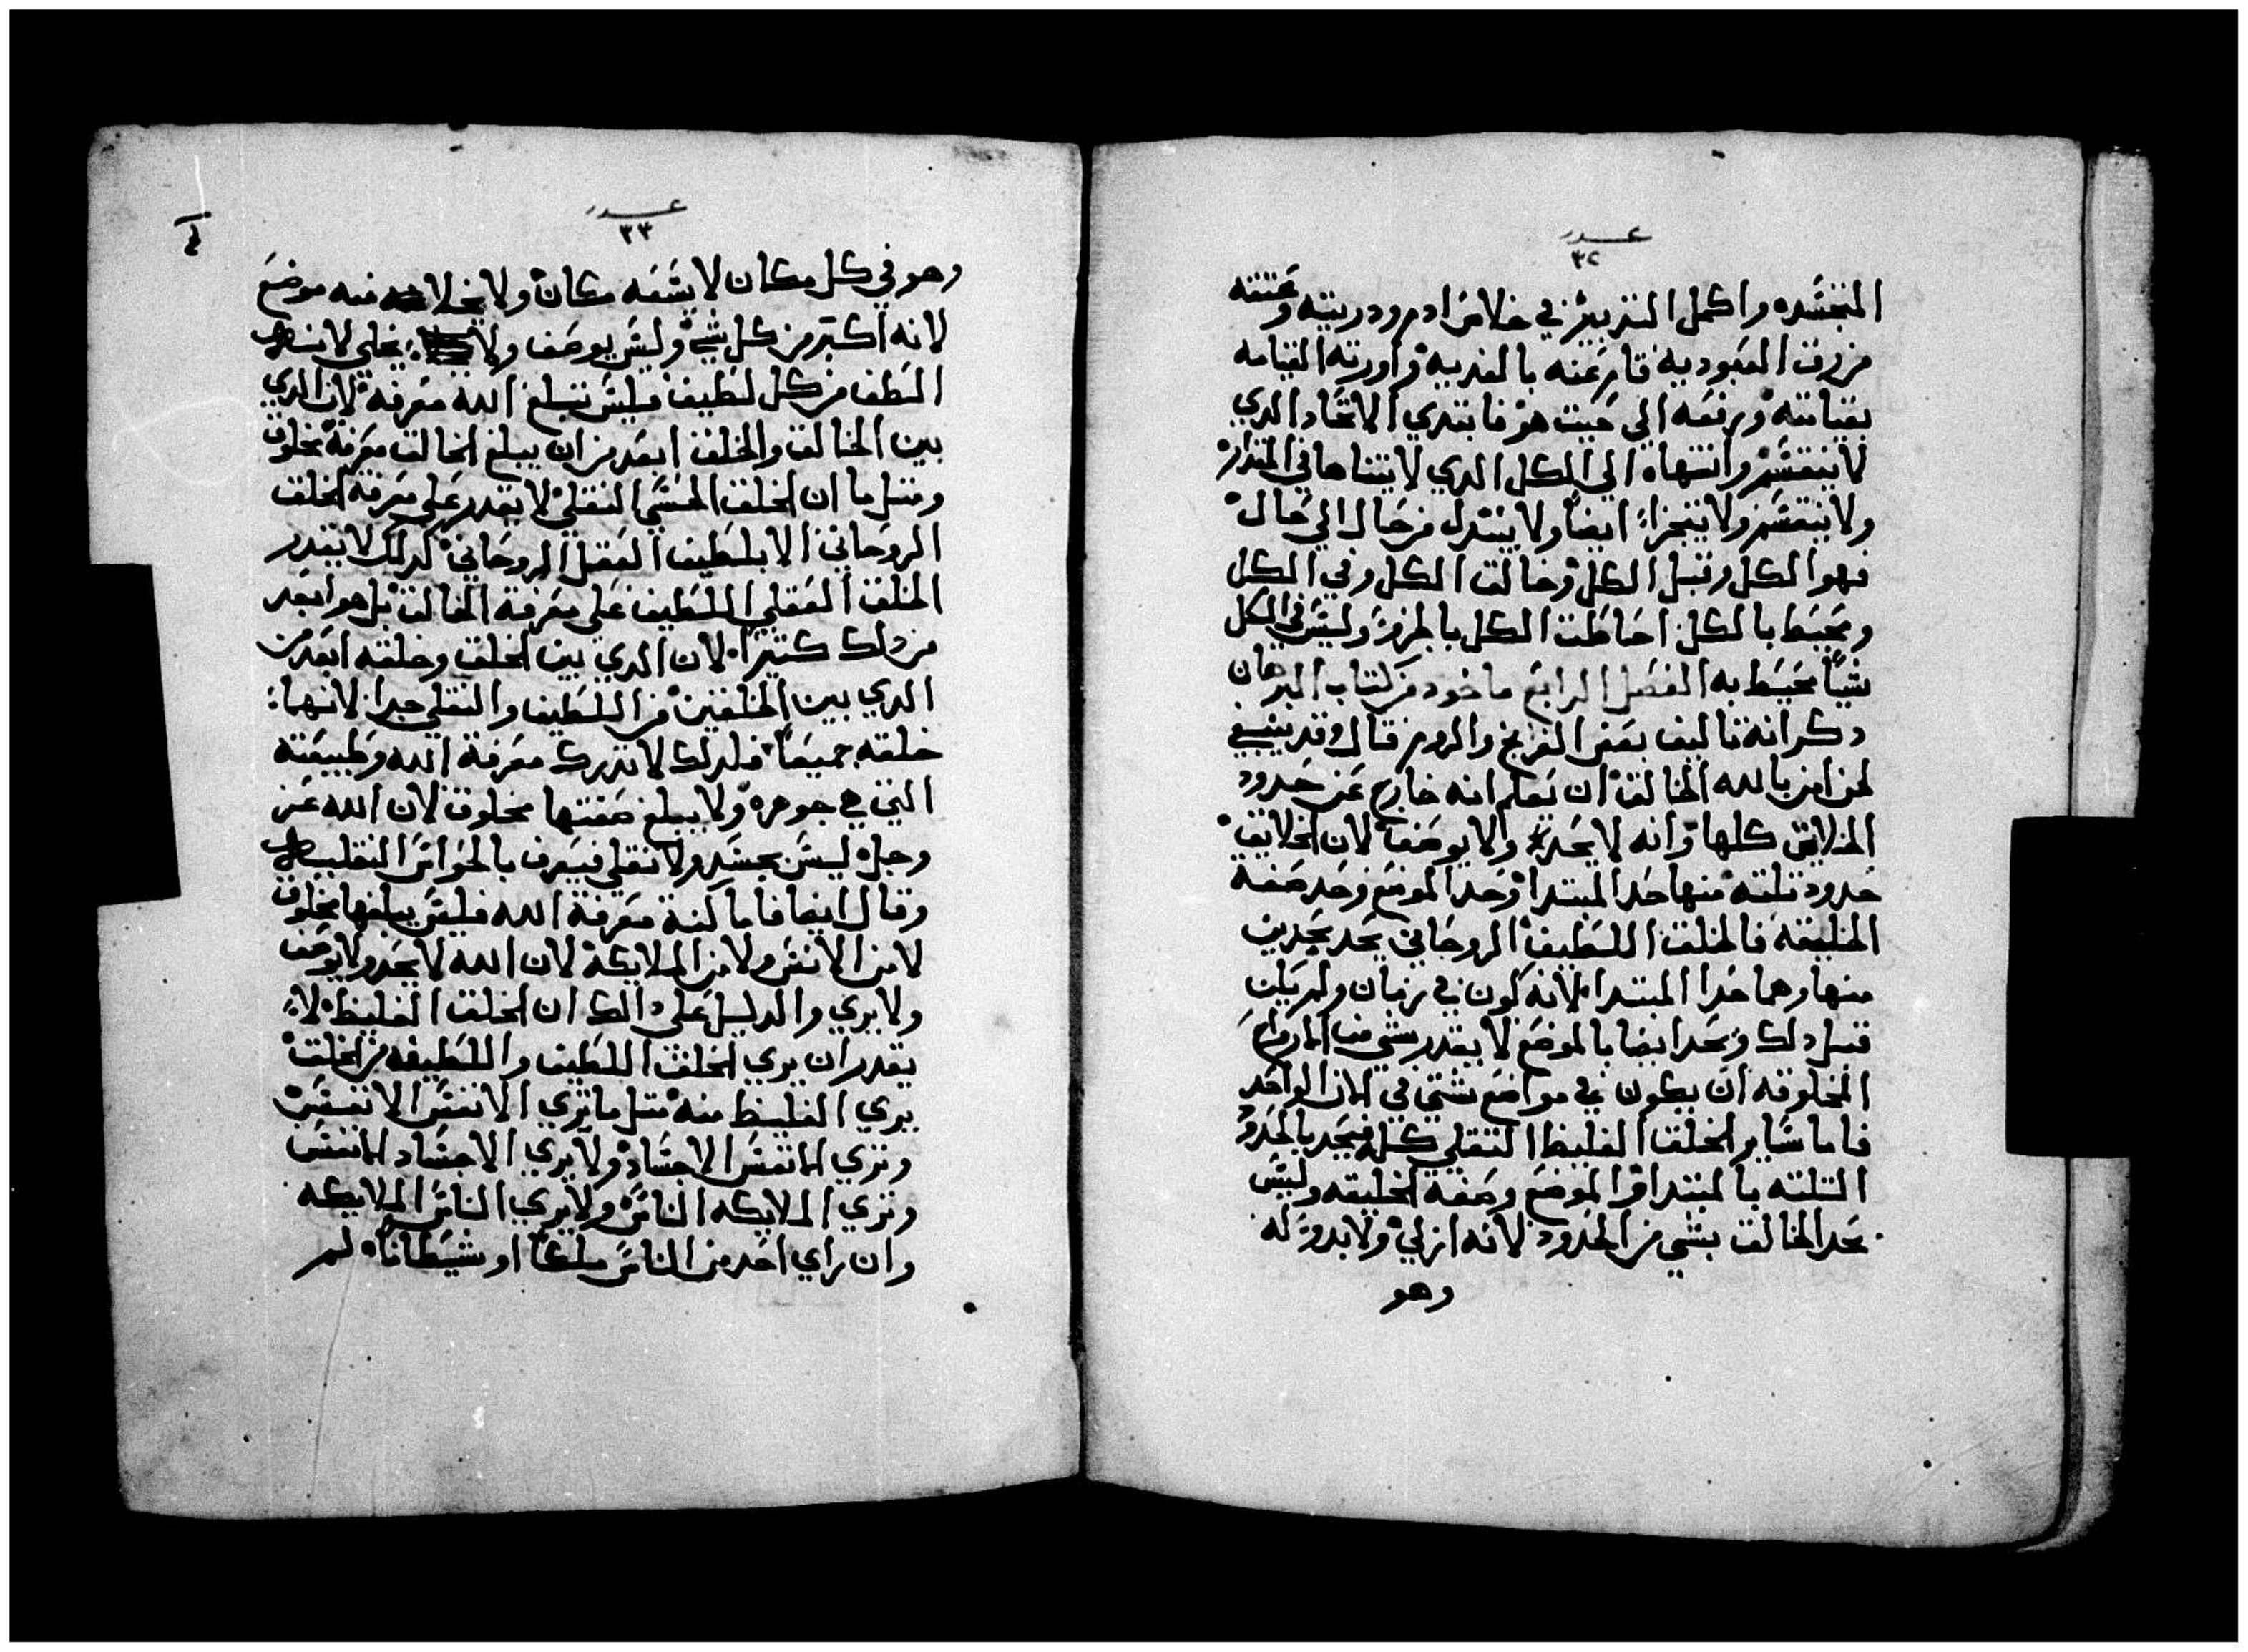 عدد
٣٢
المتجسده واكمل التدبير في خلاص ادم ودريته وعتقه
من رق العبوديه قام عنه بالفديه واورته القيامه
بقيامته ورفعه الي حيت هو فابتدي الاتحاد الدي
لا ينقسم وانتهاه الي الكل الدي لا يتناها في المقدار
ولا ينقسم ولا يتجزا ايضا ولا يتبدل من حال الي حال
فهو الكل وقبل الكل وخالق الكل وفي الكل
ومحيط بالكل احاطت الكل بالجزو وليس في الكل
شيا محيط به الفصل الرابع ماخود من كتاب البرهان
دكر انه تاليف بعض الفرنج والروم قال وقد ينبغي
لمن امن بالله الخالق ان يعلم انه خارج عن حدود
الخلايق كلها وانه لا يحد ولا يوصف لان الخلايق
حدود تلته منها حد المبتدا وحد الموضع وحد صفة
الخليقه فالخلق اللطيف الروحاني يحد بحدين
منها وهما حد المبتدا لانه كون في زمان ولم يكن
قبل دلك ويحد ايضا بالموضع لا يقدر شي من الارواح
المخلوقه ان يكون في مواضع شتي في الان الواحد
فاما ساير الخلق الغليظ التقلي كله فيحد بالحدود
التلته بالمبتدا والموضع وصفة الخليقه وليس
يحد الخالق بشي من الحدود لانه ازلي ولا بدو له
وهو
عدد
٣٣
وهو في كل مكان لا يسعه مكان ولا يخلا منه موضع
لانه اكبر من كل شي وليس يوصف ولا يخلي لانه
الطف من كل لطيف فليس تبلغ الله معرفة لان الدي
بين الخالق والخلق ابعد من ان يبلغ الخالق معرفة مخلوق
ومتل ما ان الخلق الحسي التقلي لا يقدر علي معرفة الخلق
الروحاني الا بلطيف العقل الروحاني كدلك لا يقدر
الخلق العقلي اللطيف علي معرفة الخالق بل هو ابعد
من دلك كتيرا لان الدي بين الخلق وخلقه ابعد من
الدي بين الخلقين من اللطيف والتقلي جدا لانهما
خلقه جميعا فلدلك لا تدرك معرفة الله وطبيعته
التي هي جوهره ولا يبلغ صفتها مخلوق لان الله عز
وجل ليس بجسد ولا تقلي فيعرف بالحواس التقليه
وقال ايضا فاما كنة معرفة الله فليس يبلغها مخلوق
لا من الانس ولا من الملايكة لان الله لا يحد ولا يوصف
ولا يري والدليل علي دالك ان الخلق الغليظ لا
يقدر ان يري الخلق اللطيف واللطيفه من الخلق
يري الغليظ منه متل ما تري الانفس الانفس
وتري الانفس الاجساد ولا يري الاجساد الانفس
وتري الملايكه الناس ولا يري الناس الملايكه
وان راي احد من الناس ملكا او شيطانا لم